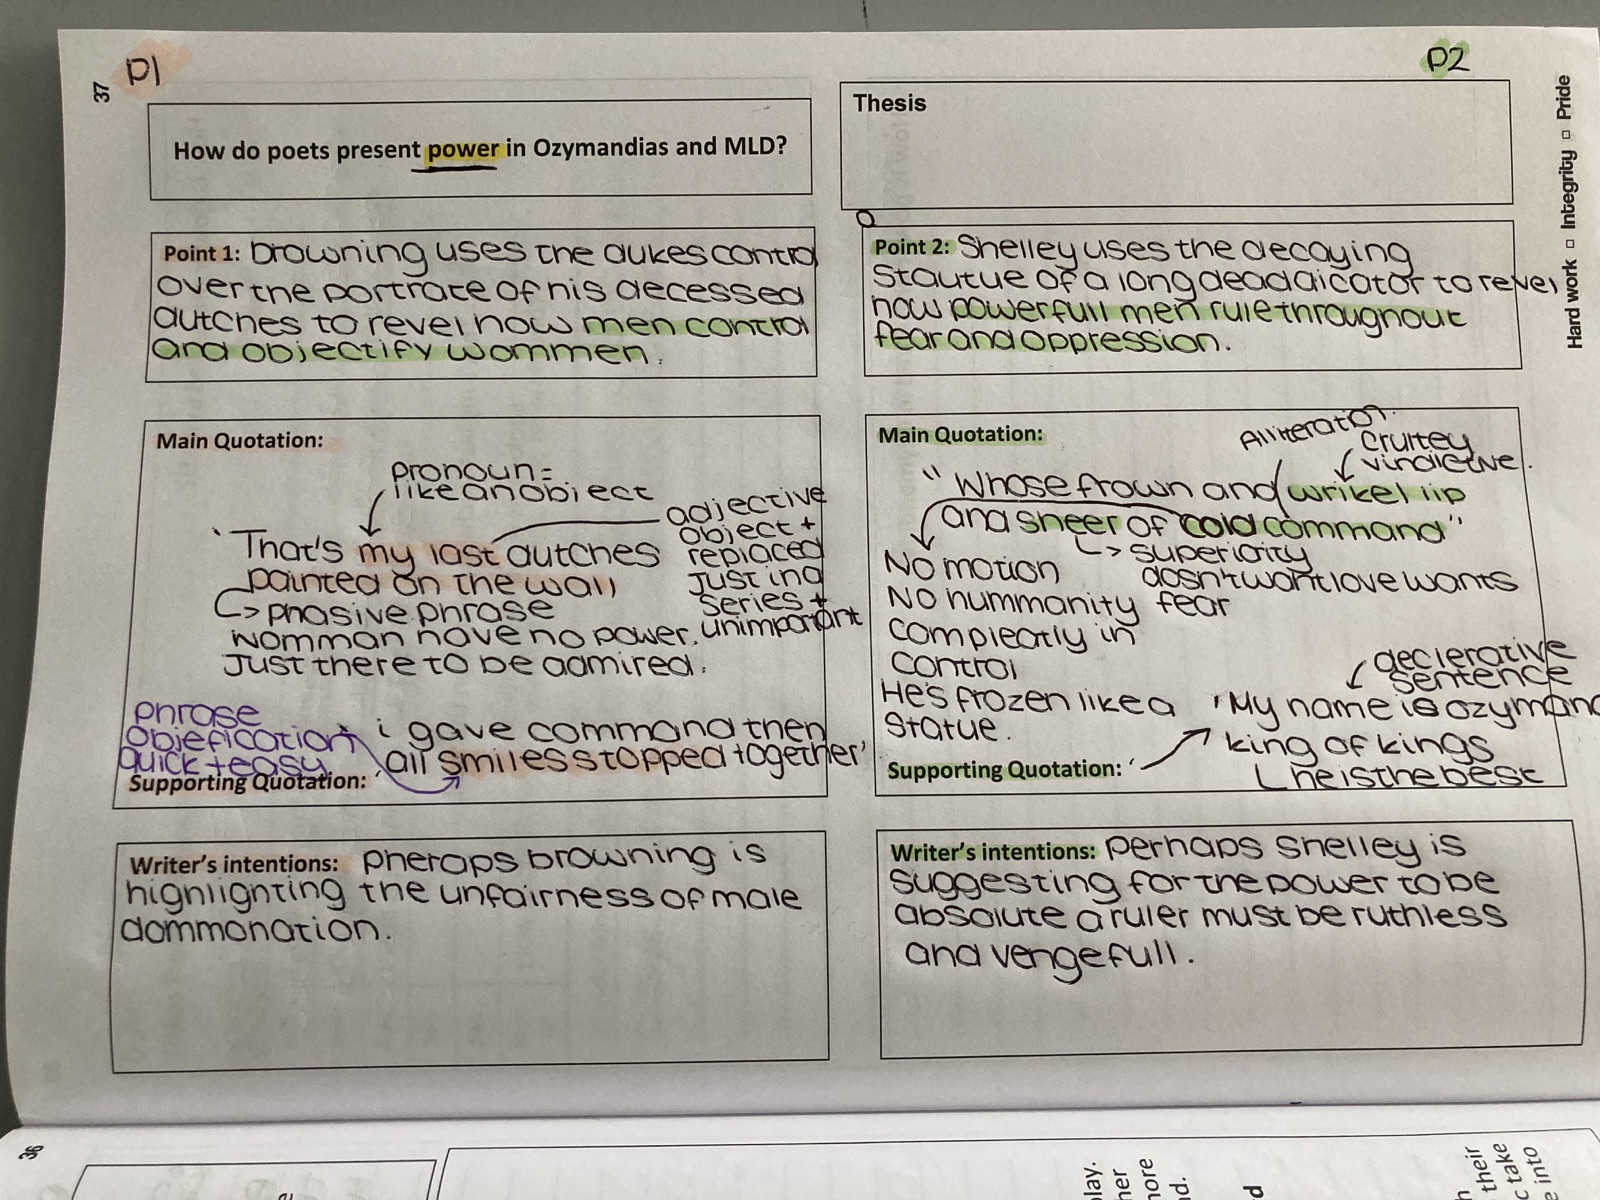 P1
P2
37
How do poets present power in Ozymandias and MLD?
Thesis
Hard work ▫ Integrity ▫ Pride
Point 1: Browning uses the dukes control
over the portrate of his decessed
dutches to revel how men control
and objectify wommen.
Point 2: Shelley uses the decaying
stautue of a long dead dicator to revel
how powerfull men rule throughout
fear and oppression.
Main Quotation:
pronoun =
like an object
adjective
object +
replaced
just in a
series +
unimportant
'That's my last dutches
painted on the wall
phasive phrase
womman have no power.
Just there to be admired.
phrase
objefication
quick + easy
i gave command then
Supporting Quotation: 'all smiles stopped together'
Main Quotation:
Alliteration
Crultey
vindictve.
"Whose frown and wrikel lip
and sneer of cold command"
superiority
dosn't want love wants
fear
No motion
No hummanity
compleatly in
control
He's frozen like a
statue.
declerative
sentence
Supporting Quotation: '
'My name is ozymand
king of kings
he is the best
Writer's intentions: Pheraps browning is
highlighting the unfairness of male
dommonation.
Writer's intentions: Perhaps Shelley is
suggesting for the power to be
absolute a ruler must be ruthless
and vengefull.
36